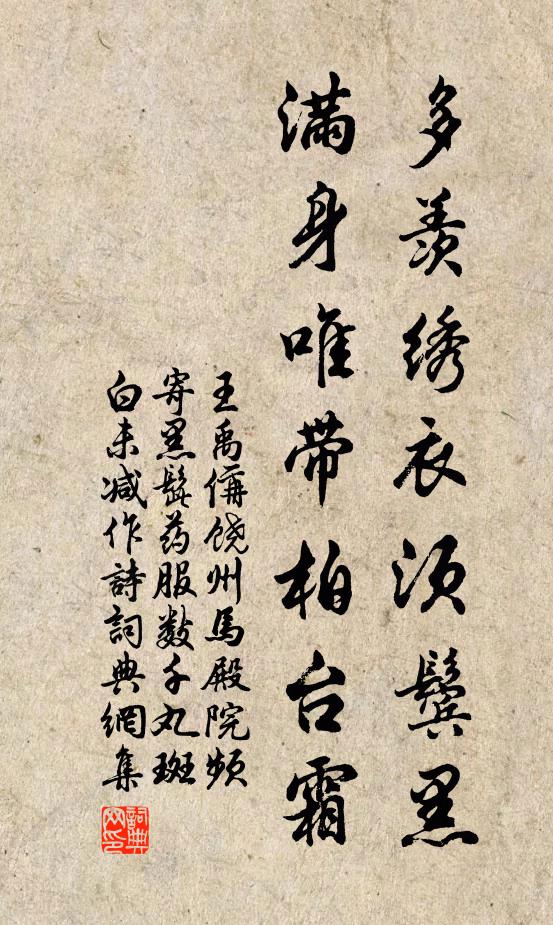 多羡绣衣须鬓黑
满身唯带柏台霜
王禹偁饶州马殿院频
寄黑髭药服数千丸斑
白未减作詩詞典網集
詞典网印